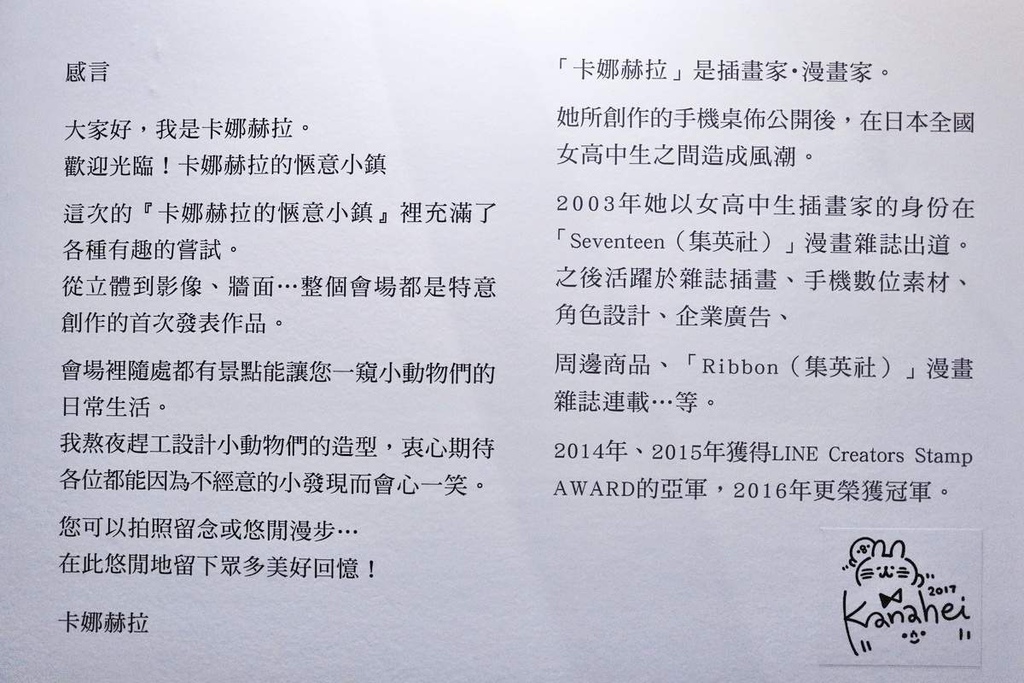 感言
大家好，我是卡娜赫拉。
歡迎光臨！卡娜赫拉的愜意小鎮
這次的『卡娜赫拉的愜意小鎮』裡充滿了
各種有趣的嘗試。
從立體到影像、牆面⋯整個會場都是特意
創作的首次發表作品。
會場裡隨處都有景點能讓您一窺小動物們的
日常生活。
我熬夜趕工設計小動物們的造型，衷心期待
各位都能因為不經意的小發現而會心一笑。
您可以拍照留念或悠閒漫步⋯
在此悠閒地留下眾多美好回憶！
卡娜赫拉
「卡娜赫拉」是插畫家·漫畫家。
她所創作的手機桌佈公開後，在日本全國
女高中生之間造成風潮。
2003年她以女高中生插畫家的身份在
「Seventeen（集英社）」漫畫雜誌出道。
之後活躍於雜誌插畫、手機數位素材、
角色設計、企業廣告、
周邊商品、「Ribbon（集英社）」漫畫
雜誌連載⋯等。
2014年、2015年獲得LINE Creators Stamp
AWARD的亞軍，2016年更榮獲冠軍。
2017
Kanahei